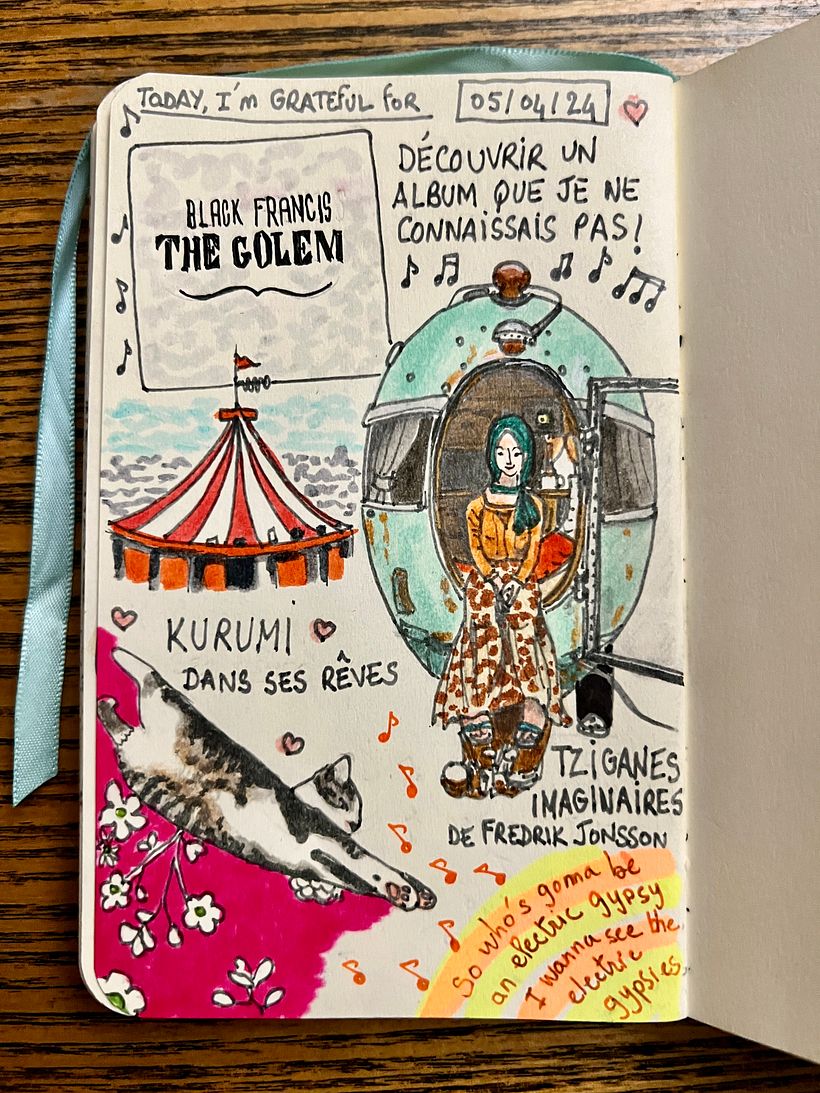 TODAY, I'm GRATEFUL for
05/04/24
BLACK FRANCIS
THE GOLEM
DÉCOUVRIR UN
ALBUM QUE JE NE
CONNAISSAIS PAS!
KURUMI
DANS SES RÊVES
TZIGANES
IMAGINAIRES
DE FREDRIK JONSSON
So who's gonna be
an electric gypsy
I wanna see the
electric
gypsies